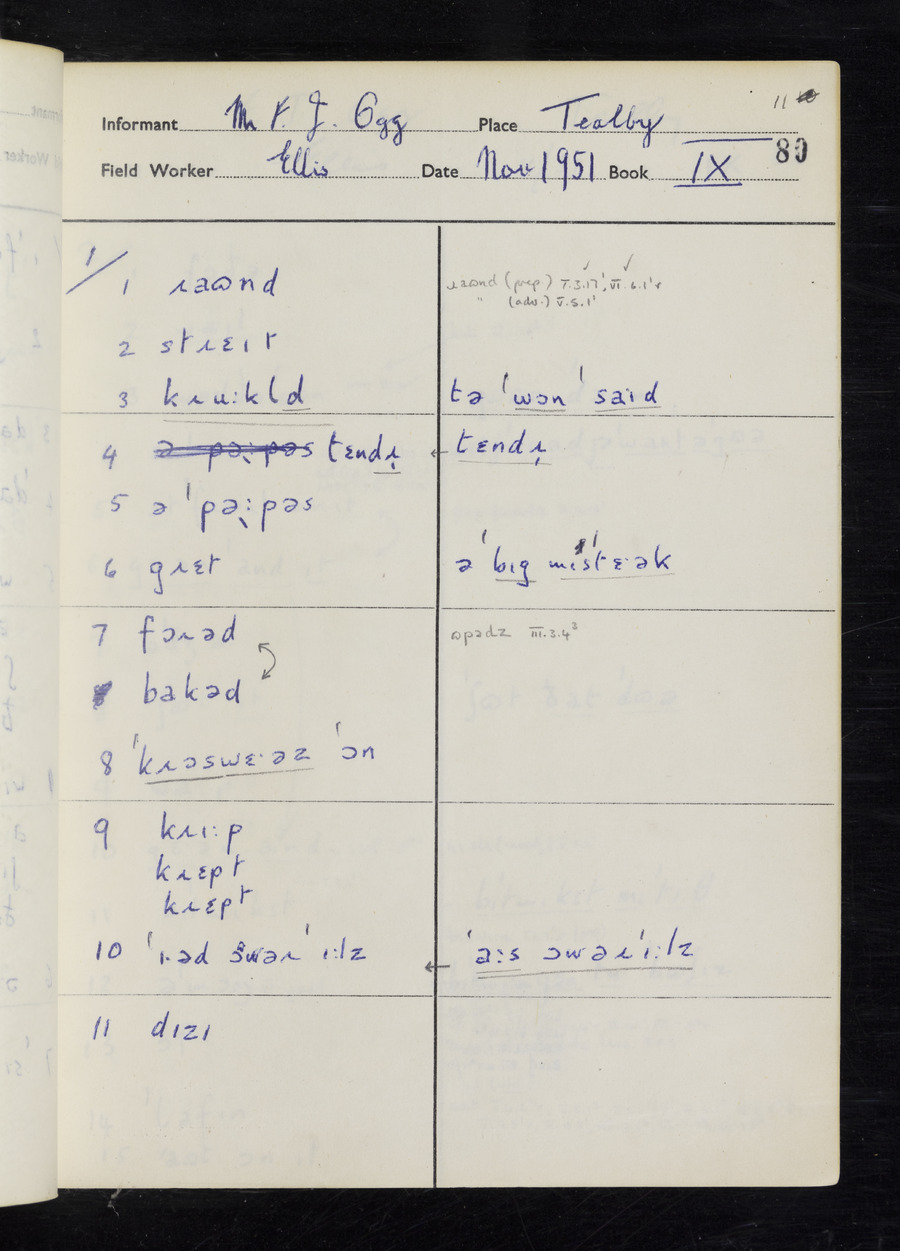 11
Informant Mr F. J. Ogg Place Tealby
80
Field Worker Ellis Date Nov 1951 Book IX
1/
1 ɹaʊnd ɹaʊnd (prep) V.3.17¹, VI.6.1¹
" (adv.) V.5.1¹
2 stɹɛɪt
3 kɹuːkld tə ˈwɔn ˈsaɪd
4 ə pəː pəs tɛndɪ̣ ← tɛndɪ̣
5 ə ˈpəː pəs
6 gɹɛt ə ˈbɪg mɪˈstɛˑək
7 fɔɹəd ʊpədz III.3.4³
bakəd
8 ˈkɹɔswɛˑəz ˈɔn
9 kɹiːp
kɹɛpt
kɹɛpt
10 ˈɪˑəd ɔwəɹ ˈɪːlz ← ˈaːs ɔwəɹˈɪːlz
11 dɪzɪ